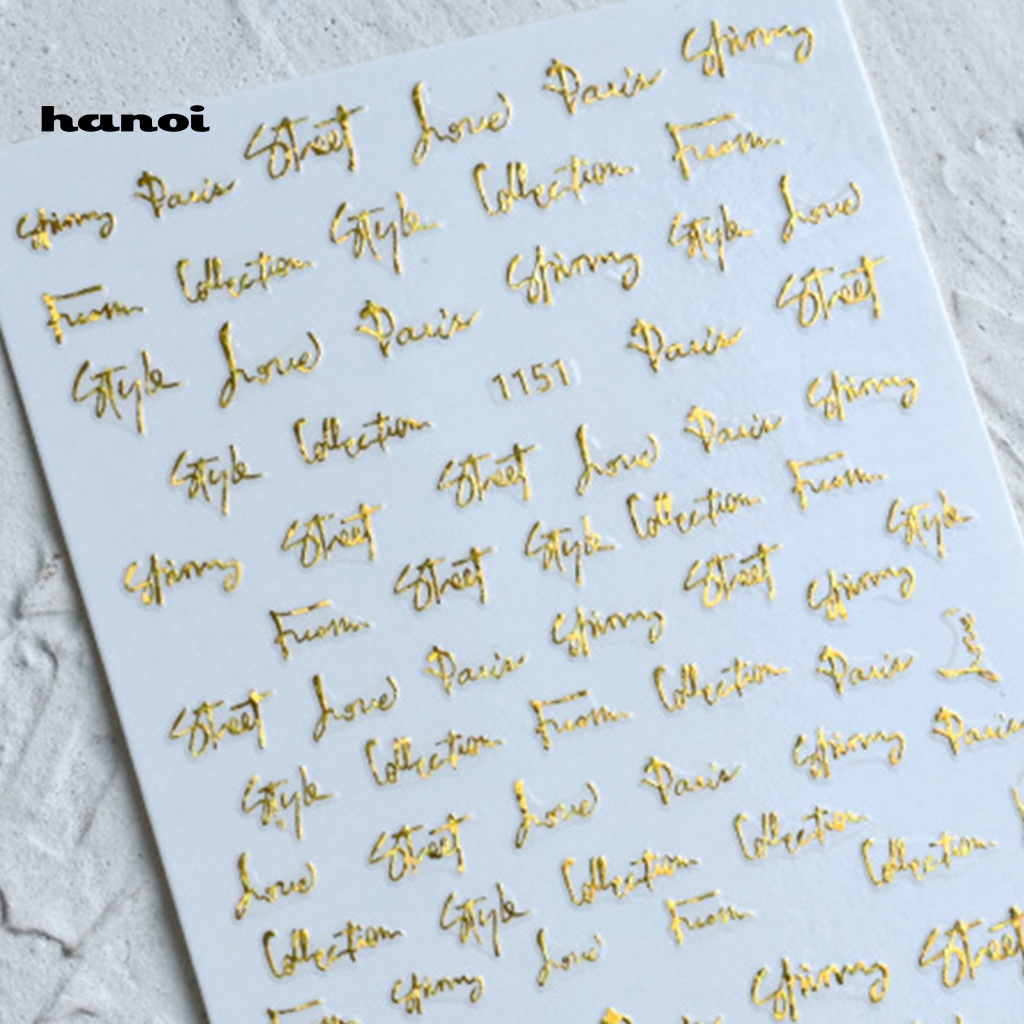 hanoi
Spring Paris Street Love Paris Spring
From Collection Style Collection From
Style Love Paris Spring Style Love
Style Collection 1151 Paris Street
Spring Street Street Love Paris Spring
From Street Style Collection From Style
Street Love Paris Spring Street Spring
Style Collection From Collection Paris Love
Love Street Love Paris Spring Paris
Collection Style Collection Collection Collection
Spring Love From
From Spring Street